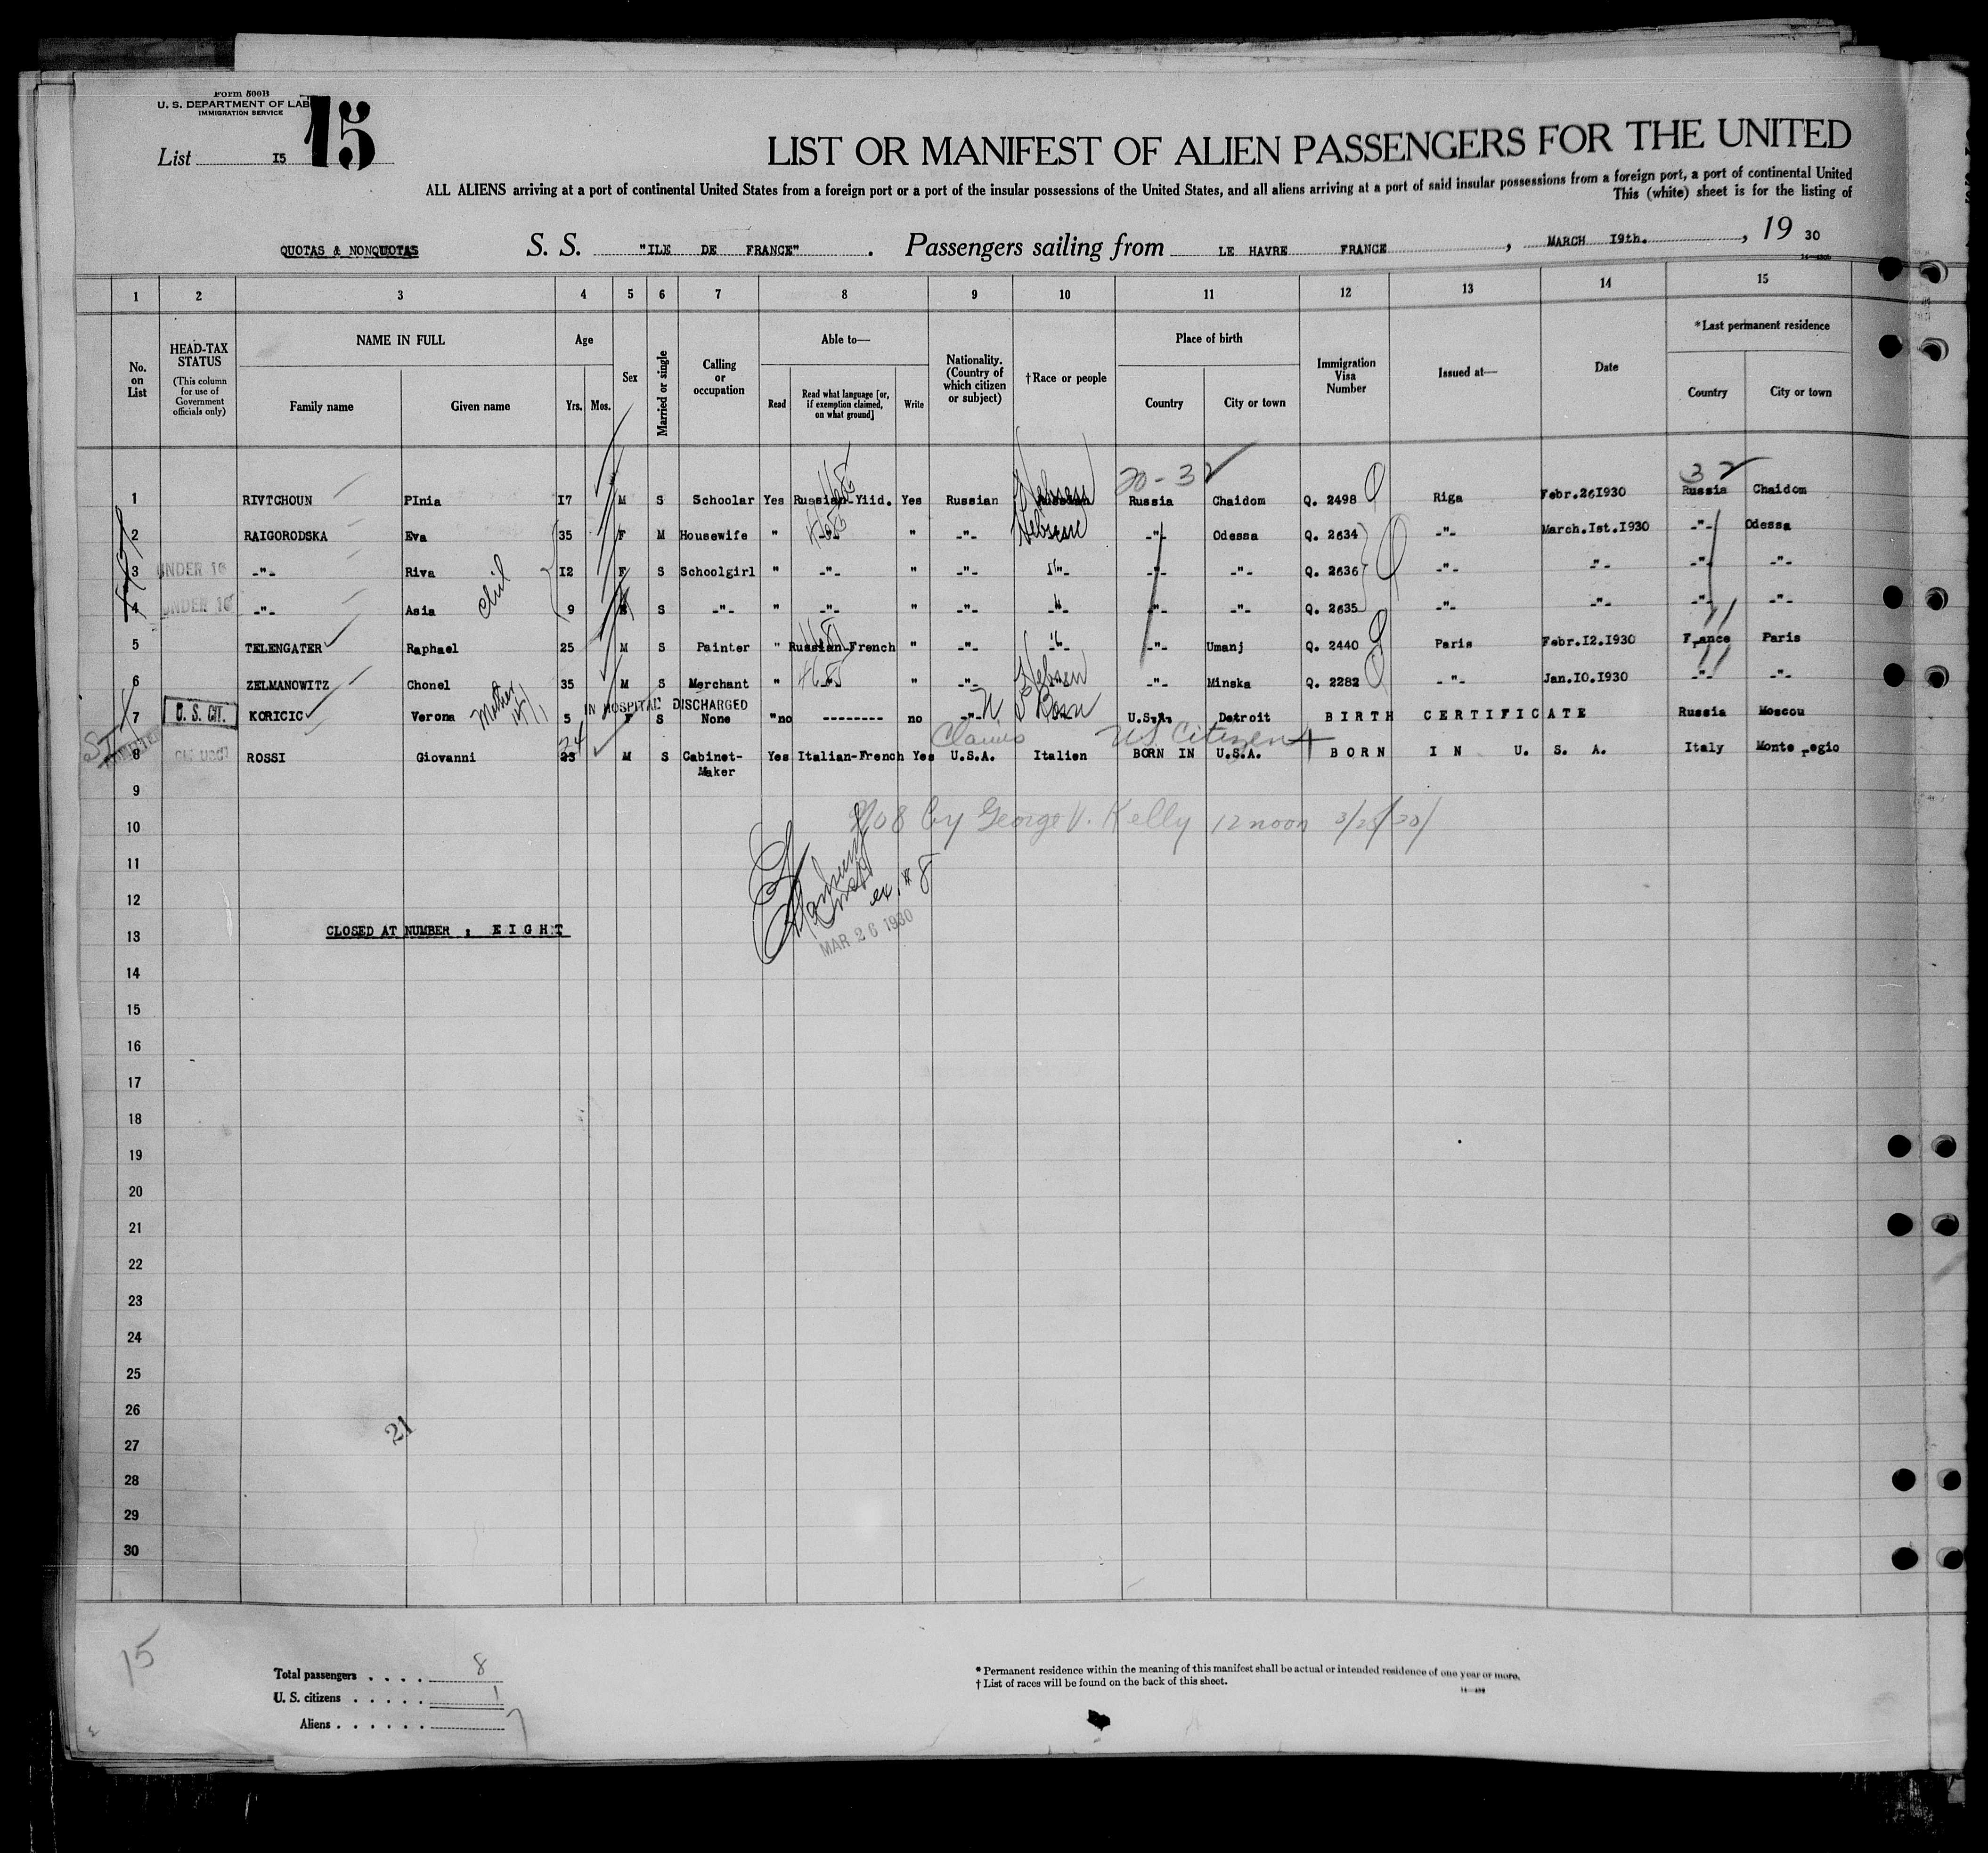 Form 500B
U. S. DEPARTMENT OF LAB
IMMIGRATION SERVICE
15
List 15
LIST OR MANIFEST OF ALIEN PASSENGERS FOR THE UNITED
ALL ALIENS arriving at a port of continental United States from a foreign port or a port of the insular possessions of the United States, and all aliens arriving at a port of said insular possessions from a foreign port, a port of continental United
This (white) sheet is for the listing of
QUOTAS & NONQUOTAS S. S. "ILE DE FRANCE" . Passengers sailing from LE HAVRE FRANCE , MARCH 19th. , 19 30
1 2 3 4 5 6 7 8 9 10 11 12 13 14 15
No. on List
HEAD-TAX STATUS
(This column for use of Government officials only)
NAME IN FULL
Family name Given name
Age
Yrs. Mos.
Sex
Married or single
Calling or occupation
Able to—
Read Read what language [or, if exemption claimed, on what ground] Write
Nationality. (Country of which citizen or subject)
†Race or people
Place of birth
Country City or town
Immigration Visa Number
Issued at—
Date
*Last permanent residence
Country City or town
20-32 32
1 RIVTCHOUN PInia 17 M S Schoolar Yes Russian-Yiid. Yes Russian Hebrew Russia Chaidom Q. 2498 Riga Febr.261930 Russia Chaidom
2 RAIGORODSKA Eva 35 F M Housewife " -"- " -"- Hebrew -"- Odessa Q. 2634 -"- March.1st.1930 -"- Odessa
3 UNDER 16 -"- Riva 12 F S Schoolgirl " -"- " -"- -"- -"- -"- Q. 2636 -"- -"- -"- -"-
4 UNDER 16 -"- Asia 9 S -"- " -"- " -"- -"- -"- -"- Q. 2635 -"- -"- -"- -"-
5 TELENGATER Raphael 25 M S Painter " Russian-French " -"- -"- -"- Umanj Q. 2440 Paris Febr.12.1930 France Paris
6 ZELMANOWITZ Chonel 35 M S Merchant " -"- " -"- Hebrew -"- Minska Q. 2282 -"- Jan.10.1930 -"- -"-
IN HOSPITAL DISCHARGED
7 U. S. CIT. KORICIC Verona Mother 5 F S None " no -------- no -"- U S Born U.S.A. Detroit BIRTH CERTIFICATE Russia Moscou
Claims US Citizen
24
8 ROSSI Giovanni 23 M S Cabinet-Maker Yes Italian-French Yes U.S.A. Italien BORN IN U.S.A. BORN IN U. S. A. Italy Monte regio
9
10 No 8 by George V. Kelly 12 noon 3/28/30
11
12 ex. # 8
13 CLOSED AT NUMBER : EIGHT MAR 26 1930
14
15
16
17
18
19
20
21
22
23
24
25
26
21
27
28
29
30
15
Total passengers . . . . 8
U. S. citizens . . . . . 1
Aliens . . . . . . 7
* Permanent residence within the meaning of this manifest shall be actual or intended residence of one year or more.
† List of races will be found on the back of this sheet.